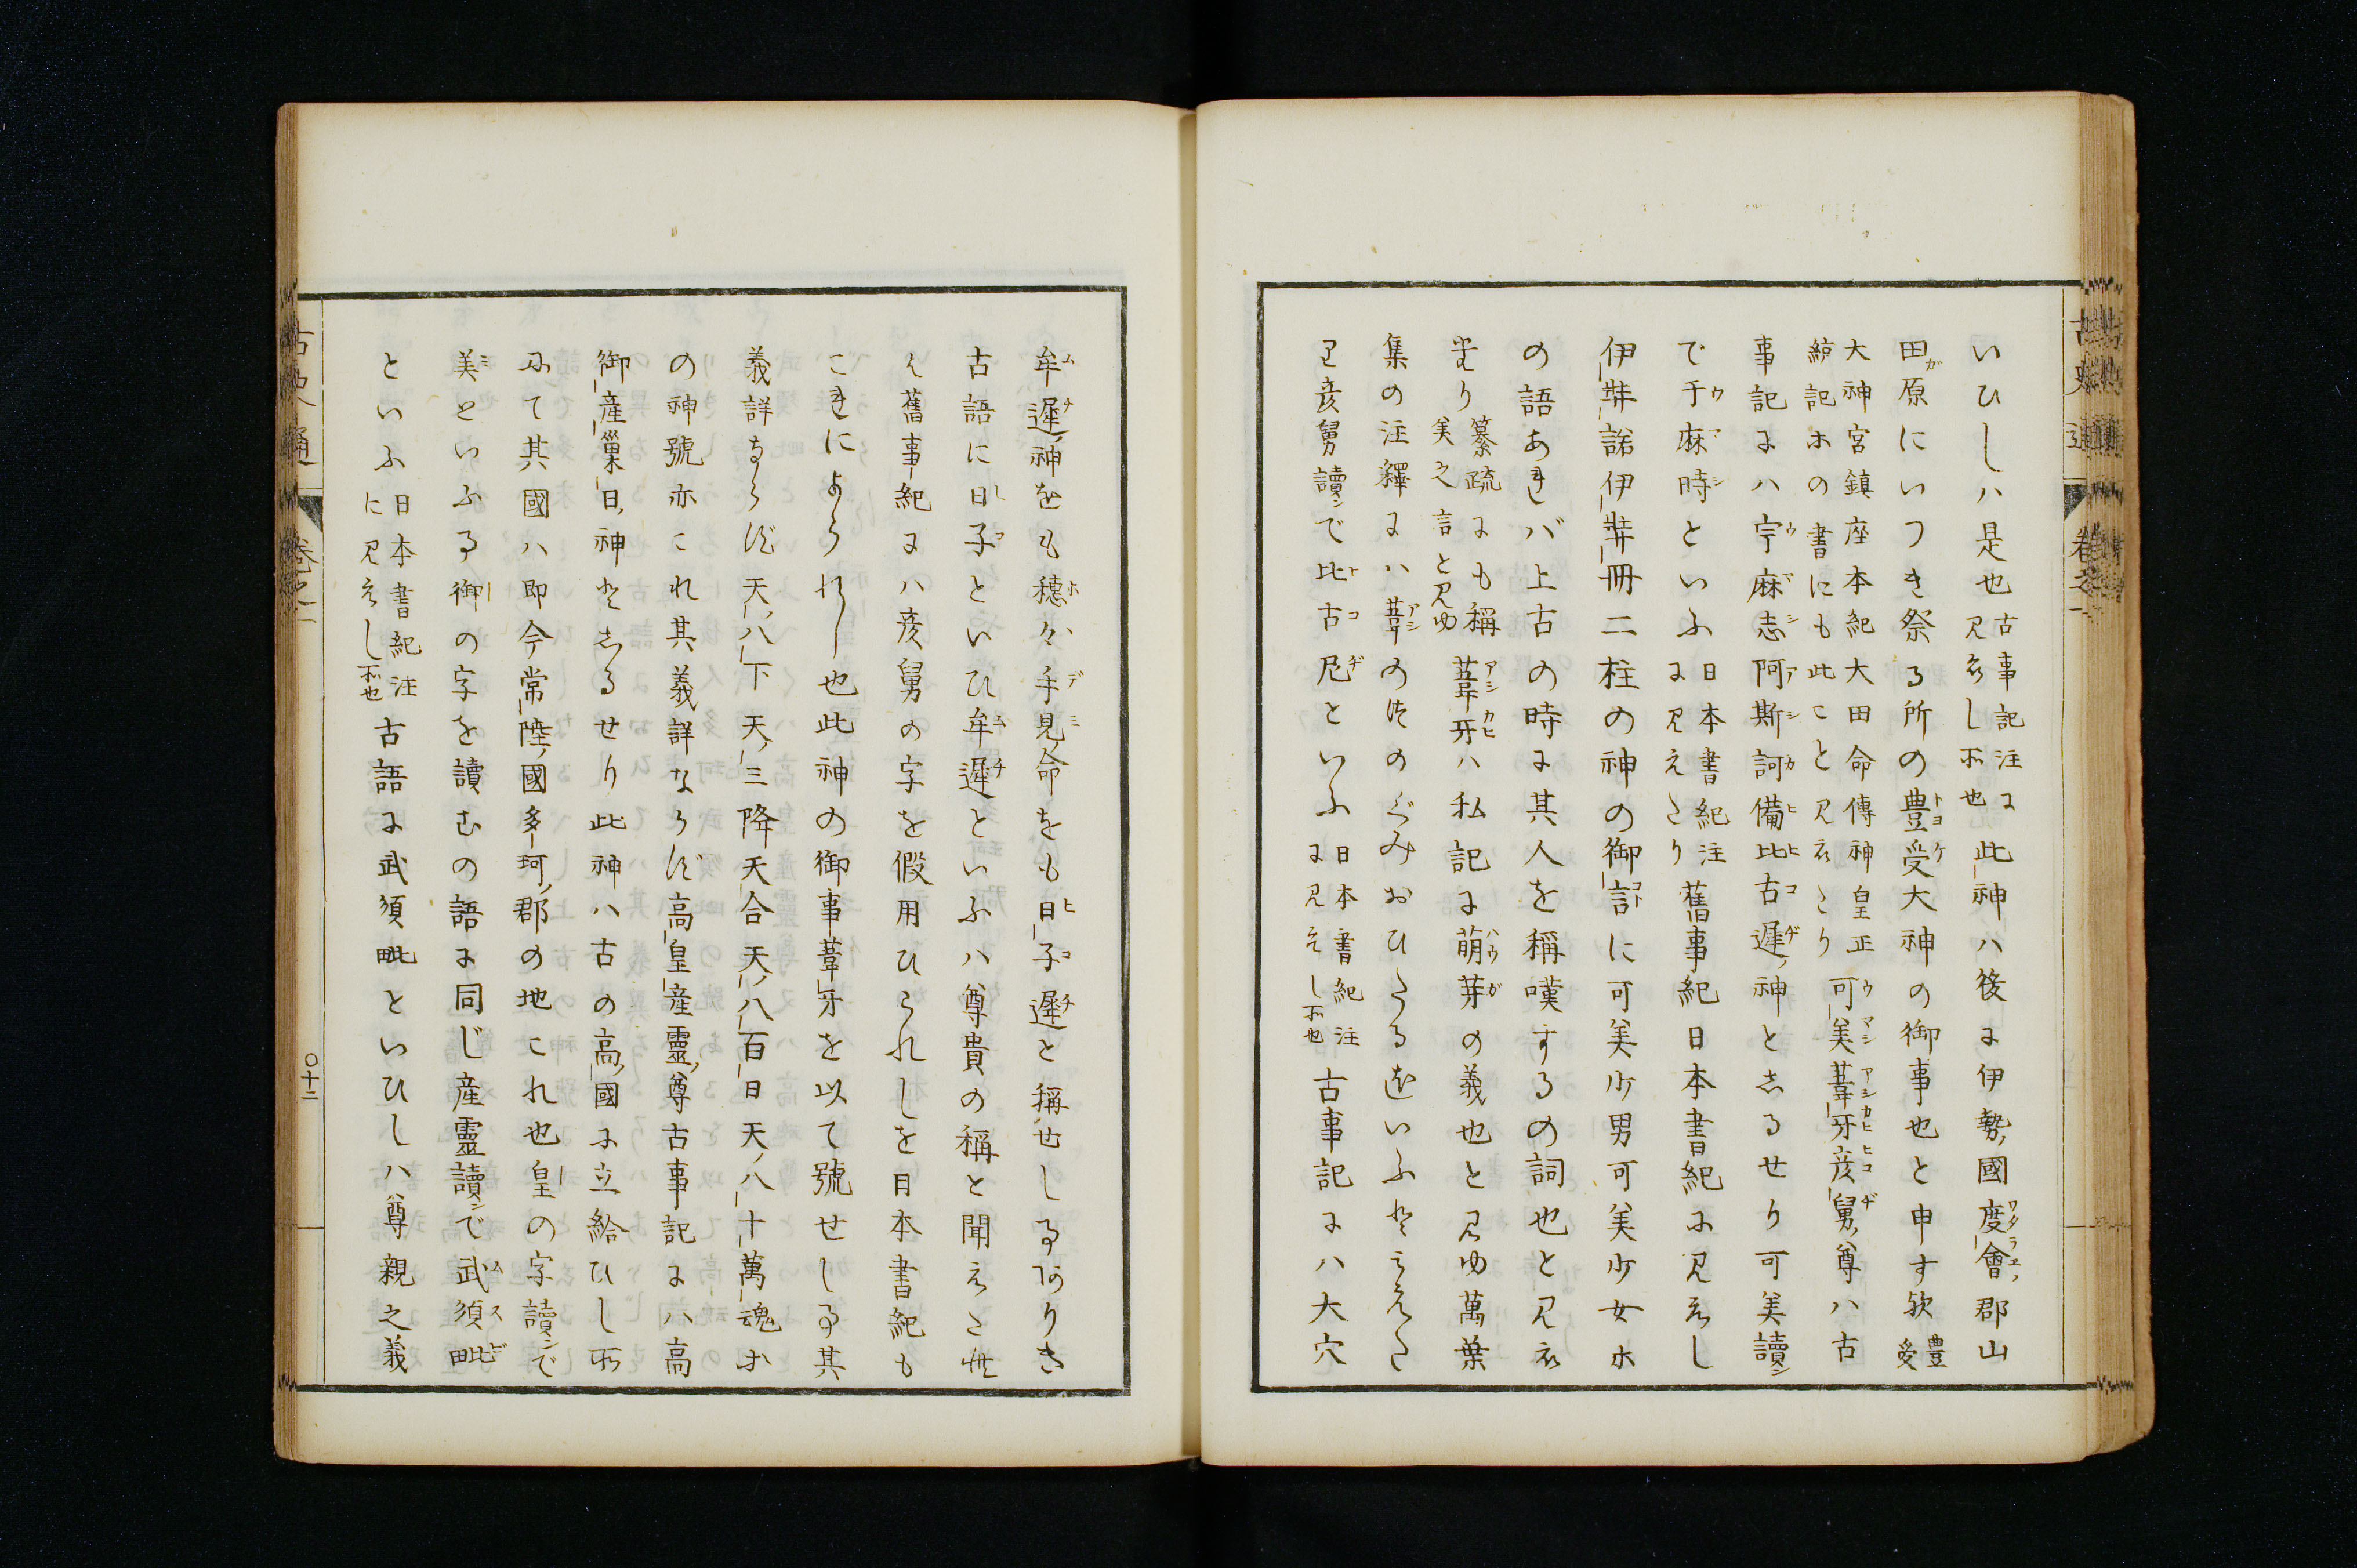 古史通 卷之一
いひしハ是也古事記注に見えし所也此神ハ後に伊勢國度會郡山
田原にいつき祭る所の豊受大神の御事也と申す歟豊受
大神宮鎮座本紀大田命傳神皇正統記等の書にも此こと見えたり可美葦牙彦舅尊ハ古
事記にハ宇麻志阿斯訶備比古遲神としるせり可美讀シ
で于麻時といふ日本書紀注に見えたり舊事紀日本書紀に見えし
伊弉諾伊弉冊二柱の神の御言に可美少男可美少女等
の語あれバ上古の時に其人を稱嘆するの詞也と見え
たり纂疏にも稱美之言と見ゆ葦牙ハ私記に萌芽の義也と見ゆ萬葉
集の注釋にハ葦のつのぐみおひたるをいふとみえた
り彦舅讀シで比古尼といふ日本書紀注に見えし所也古事記にハ大穴
牟遲神をも穗々手見命をも日子遲と稱せし事ありき
古語に日子といひ牟遲といふハ尊貴の稱と聞えたれ
ば舊事紀にハ彦舅の字を假用ひられしを日本書紀も
これによられし也此神の御事葦牙を以て號せし事其
義詳ならず天八下天三降天合天八百日天八十萬魂等
の神號亦これ其義詳ならず高皇産靈尊古事記にハ高
御産巣日神としるせり此神ハ古の高國に立給ひし所
にて其國ハ即今常陸國多珂郡の地これ也皇の字讀シで
美といふる御の字を讀むの語に同じ産靈讀シで武須毗
といふ日本書紀注に見えし所也古語に武須毗といひしハ尊親之義
古史通 卷之一
〇十二